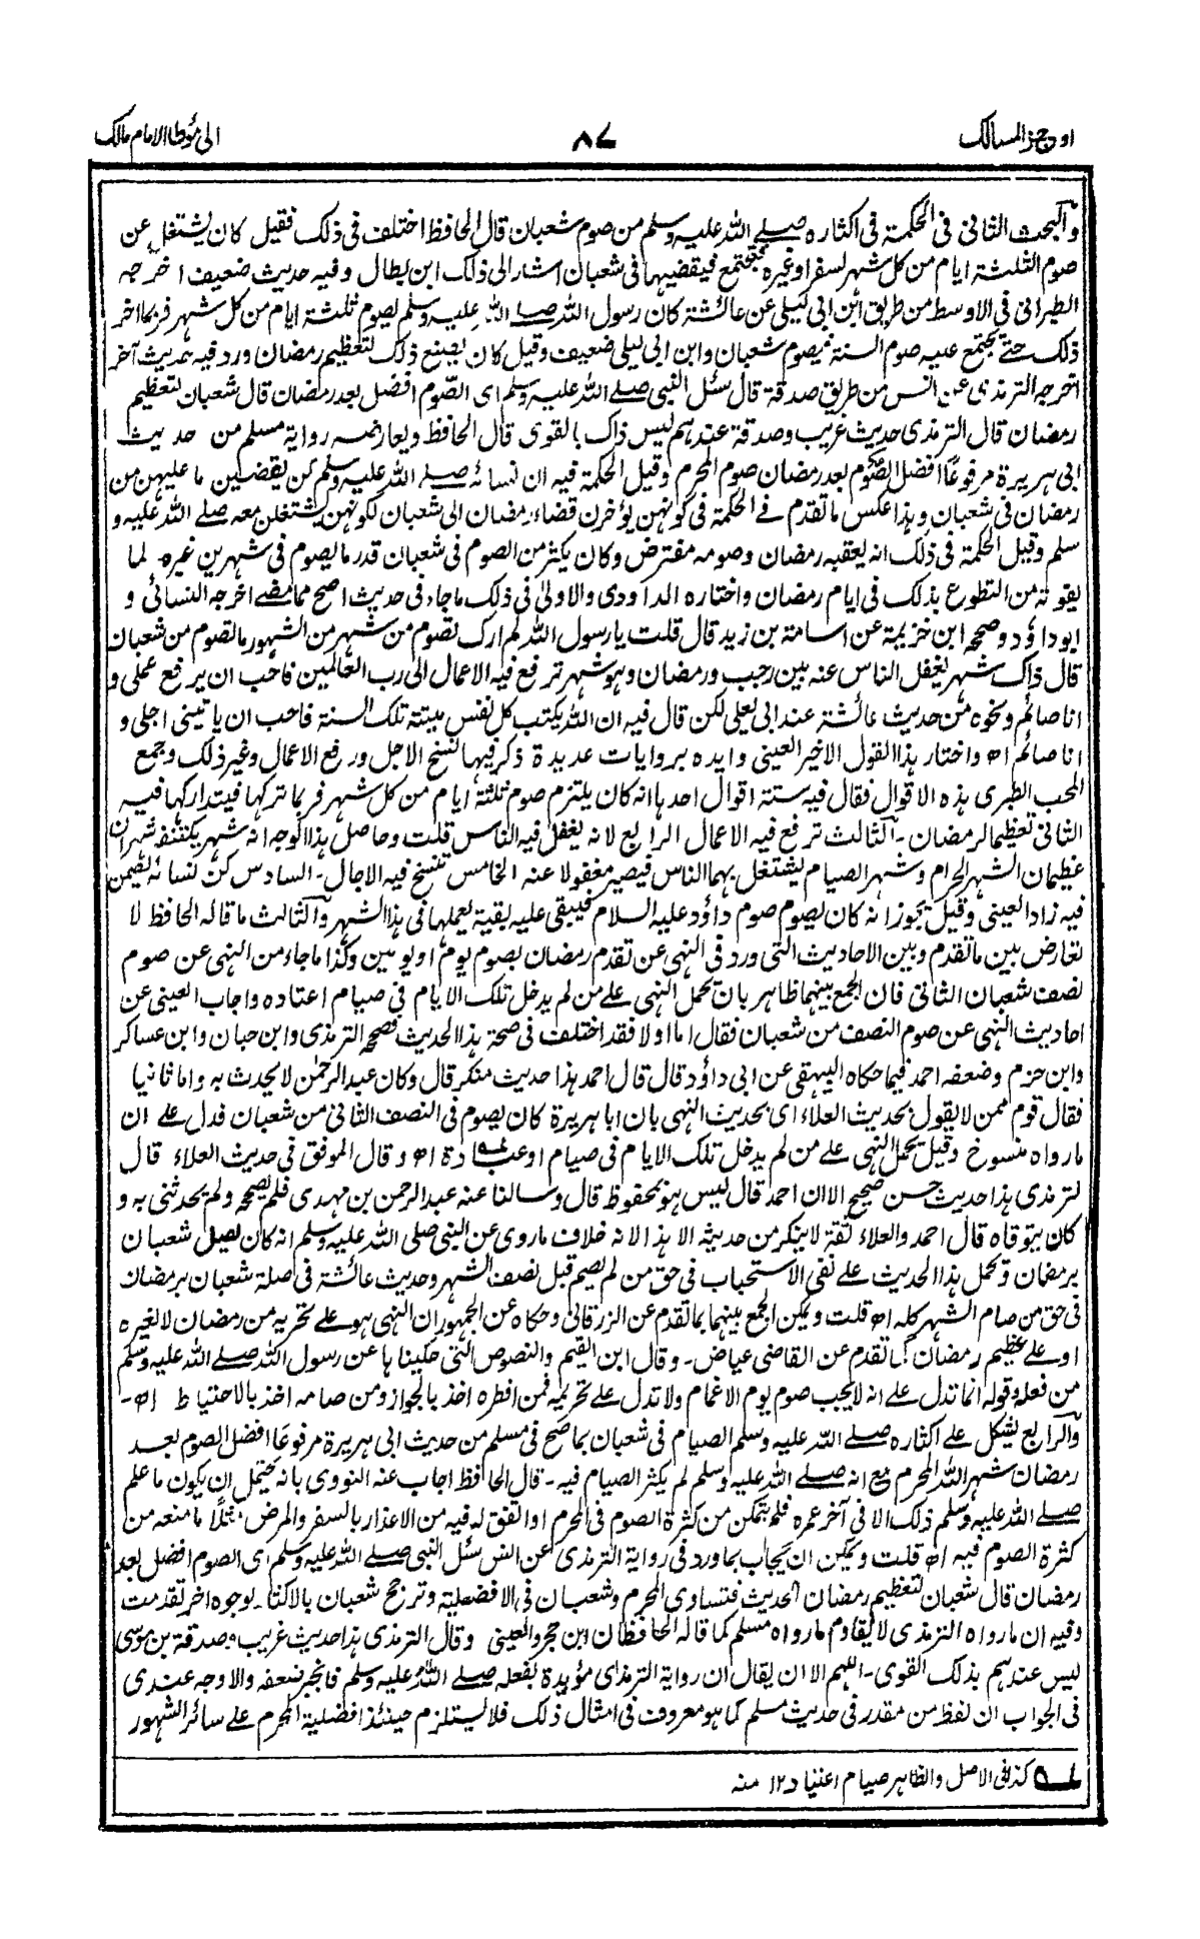 اوجز المسالك
٨٧
الى مؤطا الامام مالك
والبحث الثانى فى الحكمة فى اكثاره صلى الله عليه وسلم من صوم شعبان قال الحافظ اختلف فى ذلك فقيل كان يشتغل عن
صوم الثلثة ايام من كل شهر لسفر او غيره فتجتمع فيقضيها فى شعبان اشار الى ذلك ابن بطال وفيه حديث ضعيف اخرجه
الطبرانى فى الاوسط من طريق ابن ابى ليلى عن عائشة كان رسول الله صلى الله عليه وسلم يصوم ثلثة ايام من كل شهر فربما اخر
ذلك حتى يجتمع عليه صوم السنة فيصوم شعبان وابن ابى ليلى ضعيف وقيل كان يصنع ذلك لتعظيم رمضان ورد فيه حديث آخر
اخرجه الترمذى عن انس من طريق صدقة قال سئل النبى صلى الله عليه وسلم اى الصوم افضل بعد رمضان قال شعبان لتعظيم
رمضان قال الترمذى حديث غريب وصدقة عندهم ليس ذاك بالقوى قال الحافظ ويعارضه رواية مسلم من حديث
ابى هريرة مرفوعًا افضل الصوم بعد رمضان صوم المحرم وقيل الحكمة فيه ان نسائه صلى الله عليه وسلم كن يقضين ما عليهن من
رمضان فى شعبان وهذا عكس ما تقدم فى الحكمة فى كونهن يؤخرن قضاء رمضان الى شعبان لكونهن يشتغلن معه صلى الله عليه و
سلم وقيل الحكمة فى ذلك انه يعقبه رمضان وصومه مفترض وكان يكثر من الصوم فى شعبان قدر ما يصوم فى شهرين غيره لما
يفوته من التطوع بذلك فى ايام رمضان واختاره الداودى والاولى فى ذلك ما جاء فى حديث اصح مما مضى اخرجه النسائى و
ابوداؤد وصححه ابن خزيمة عن اسامة بن زيد قال قلت يا رسول الله لم ارك تصوم من شهر من الشهور ما تصوم من شعبان
قال ذاك شهر يغفل الناس عنه بين رجب ورمضان وهو شهر ترفع فيه الاعمال الى رب العالمين فاحب ان يرفع عملى و
انا صائم ونحوه من حديث عائشة عند ابى يعلى لكن قال فيه ان الله يكتب كل نفس ميتة تلك السنة فاحب ان ياتينى اجلى و
انا صائم اھ واختار هذا القول الاخير العينى وايده بروايات عديدة ذكر فيها نسخ الاجل ورفع الاعمال وغير ذلك وجمع
المحب الطبرى هذه الاقوال فقال فيه ستة اقوال احدها انه كان يلتزم صوم ثلثة ايام من كل شهر فربما تركها فيتداركها فيه
الثانى تعظيما لرمضان ۔ الثالث ترفع فيه الاعمال الرابع لانه يغفل فيه الناس قلت وحاصل هذا الوجه انه شهر يكتنفه شهران
عظيمان الشهر الحرام وشهر الصيام يشتغل بهما الناس فيصير مغفولا عنه الخامس تنسخ فيه الاجال ۔ السادس كن نسائه يصمن
فيه زاد العينى وقيل يجوز انه كان يصوم صوم داؤد عليه السلام فيبقى عليه بقية يعملها فى هذا الشهر والثالث ما قاله الحافظ لا
تعارض بين ما تقدم وبين الاحاديث التى ورد فى النهى عن تقدم رمضان بصوم يوم او يومين وكذا ما جاء من النهى عن صوم
نصف شعبان الثانى فان الجمع بينهما ظاهر بان يحمل النهى على من لم يدخل تلك الايام فى صيام اعتاده واجاب العينى عن
احاديث النهى عن صوم النصف من شعبان فقال اما اولا فقد اختلف فى صحة هذا الحديث فصححه الترمذى وابن حبان وابن عساكر
وابن حزم وضعفه احمد فيما حكاه البيهقى عن ابى داؤد قال قال احمد هذا حديث منكر قال وكان عبد الرحمٰن لا يحدث به واما ثانيا
فقال قوم ممن لا يقول بحديث العلاء اى بحديث النهى بان ابا هريرة كان يصوم فى النصف الثانى من شعبان فدل على ان
ما رواه منسوخ وقيل يحمل النهى على من لم يدخل تلك الايام فى صيام او عبادة اھ وقال الموفق فى حديث العلاء قال
لترمذى هذا حديث حسن صحيح الا ان احمد قال ليس هو بمحفوظ قال وسالنا عنه عبد الرحمن بن مهدى فلم يصححه ولم يحدثنى به و
كان يتوقاه قال احمد والعلاء ثقة لا ينكر من حديثه الا هذا لانه خلاف ماروى عن النبى صلى الله عليه وسلم انه كان يصل شعبان
برمضان ويحمل هذا الحديث على نفى الاستحباب فى حق من لم يصم قبل نصف الشهر وحديث عائشة فى صلة شعبان برمضان
فى حق من صام الشهر كله اھ قلت ويمكن الجمع بينهما بما تقدم عن الزرقانى وحكاه عن الجمهور ان النهى هو على تحريه من رمضان لا لغيره
او على تعظيم رمضان كما تقدم عن القاضى عياض ۔ وقال ابن القيم والنصوص التى حكيناها عن رسول الله صلى الله عليه وسلم
من فعله وقوله انما تدل على انه لا يجب صوم يوم الاغمام ولا تدل على تحريمه فمن افطره اخذ بالجواز ومن صامه اخذ بالاحتياط اھ ۔
والرابع يشكل على اكثاره صلى الله عليه وسلم الصيام فى شعبان بما صح فى مسلم من حديث ابى هريرة مرفوعًا افضل الصوم بعد
رمضان شهر الله المحرم مع انه صلى الله عليه وسلم لم يكثر الصيام فيه ۔ قال الحافظ اجاب عنه النووى بانه يحتمل ان يكون ما علم
صلى الله عليه وسلم ذلك الا فى آخر عمره فلم يتمكن من كثرة الصوم فى المحرم او اتفق له فيه من الاعذار بالسفر والمرض مثلًا ما منعه من
كثرة الصوم فيه اھ قلت ويمكن ان يجاب بما ورد فى رواية الترمذى عن انس سئل النبى صلى الله عليه وسلم اى الصوم افضل بعد
رمضان قال شعبان لتعظيم رمضان الحديث فتساوى المحرم وشعبان فى الافضلية وترجح شعبان بالاكثار لوجوه اخر تقدمت
وفيه ان ما رواه الترمذى لا يقاوم ما رواه مسلم كما قاله الحافظان ابن حجر والعينى وقال الترمذى هذا حديث غريب وصدقة بن موسى
ليس عندهم بذلك القوى ۔ اللهم الا ان يقال ان رواية الترمذى مؤيدة بفعله صلى الله عليه وسلم فانجبر ضعفه والاوجه عندى
فى الجواب ان لفظ من مقدر فى حديث مسلم كما هو معروف فى امثال ذلك فلا يستلزم حينئذ افضلية المحرم على سائر الشهور
كذا فى الاصل والظاهر صيام اعتياد ١٢ منه